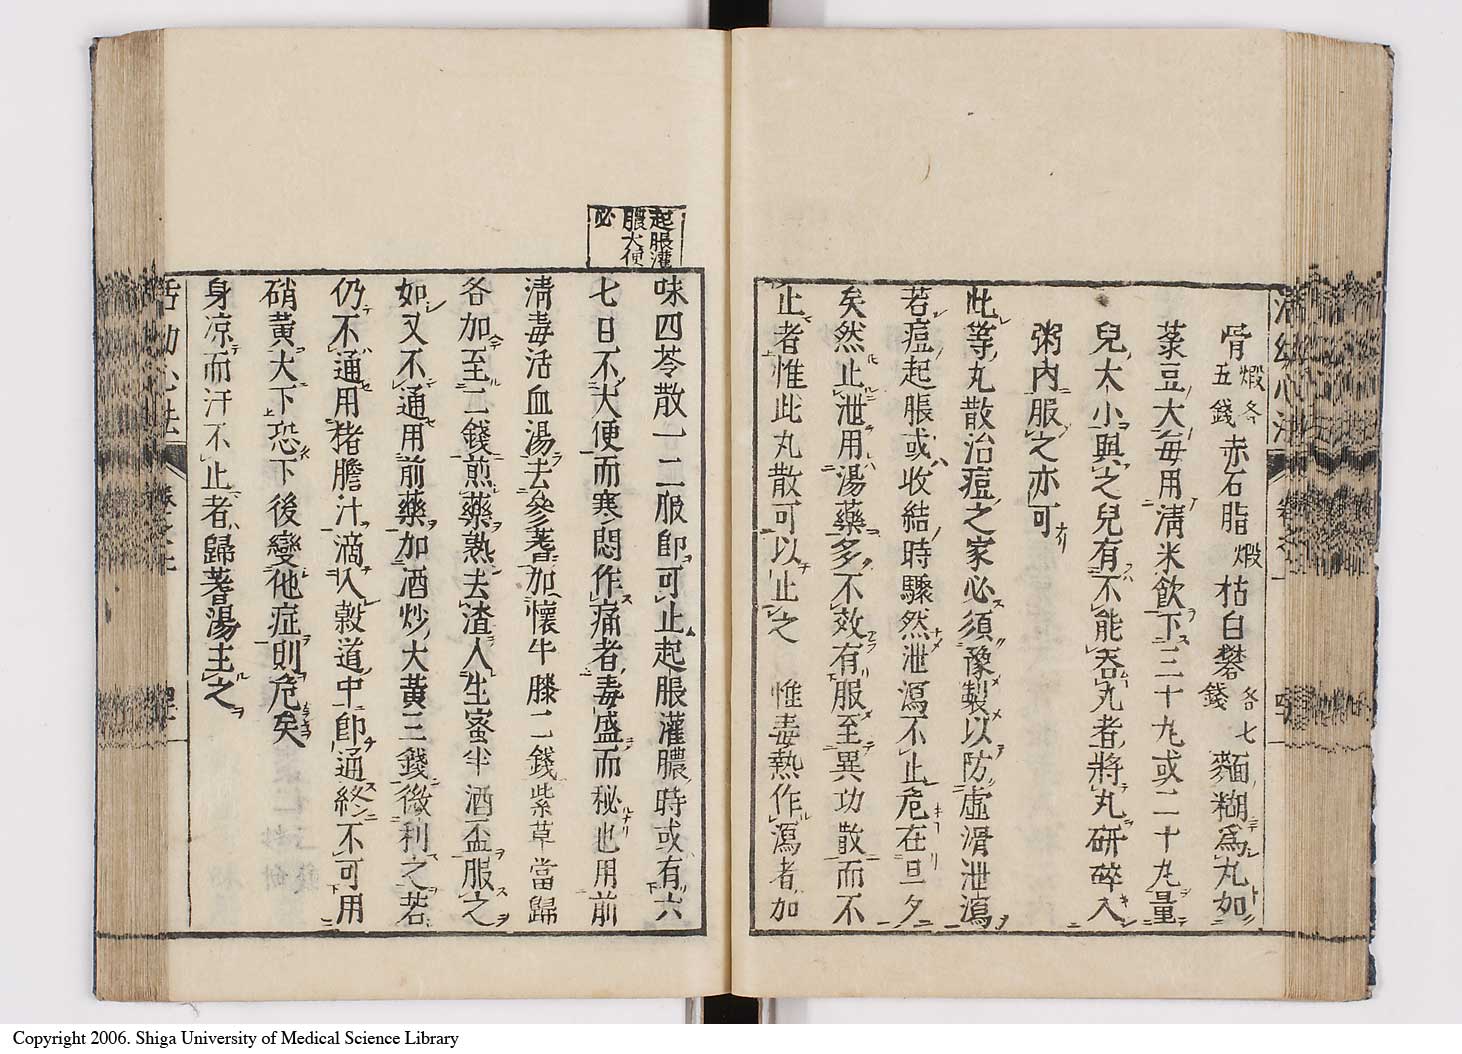 骨煅各五錢赤石脂煅枯白礬各七錢麵糊爲丸如
菉豆大每用淸米飮下三十丸或二十丸量
兒大小與之兒有不能吞丸者將丸研碎入
粥內服之亦可
此等丸散治痘之家必須豫製以防虛滑泄瀉
若痘起脹或收結時驟然泄瀉不止危在旦夕
矣然止泄用湯藥多不效有服至異功散而不
止者惟此丸散可以止之 惟毒熱作瀉者加
起脹灌
膿大便
必
味四苓散一二服卽可止起脹灌膿時或有六
七日不大便而寒悶作痛者毒盛而秘也用前
淸毒活血湯去參蓍加懷牛膝二錢紫草當歸
各加至二錢煎藥熟去渣入生蜜半酒盃服之
如又不通用前藥加酒炒大黃三錢微利之若
仍不通用猪膽汁滴入穀道中卽通終不可用
硝黃大下恐下後變他症則危矣
身凉而汗不止者歸蓍湯主之
Copyright 2006. Shiga University of Medical Science Library